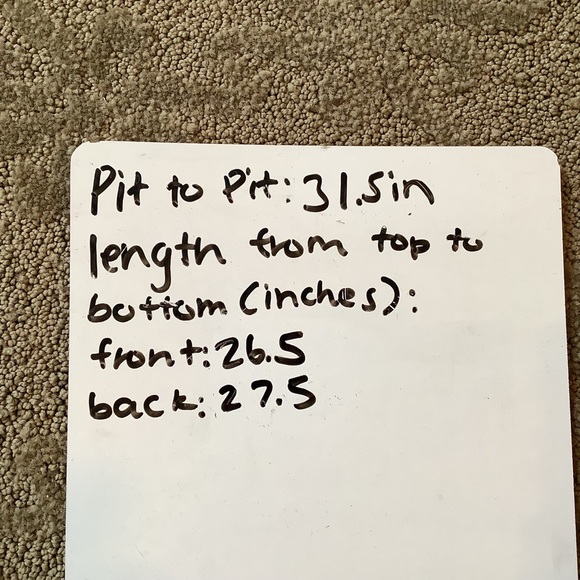 Pit to Pit: 31.5in
length from top to
bottom (inches):
front: 26.5
back: 27.5